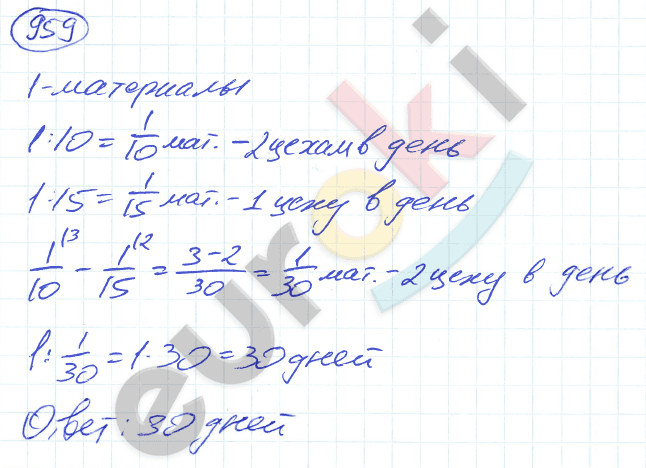 959
1-материалы
1:10 = 1/10 мат. - 2 цехам в день
1:15 = 1/15 мат. - 1 цеху в день
1/10 |3 - 1/15 |2 = 3-2/30 = 1/30 мат. - 2 цеху в день
1: 1/30 = 1·30 = 30 дней
Ответ: 30 дней
euroki